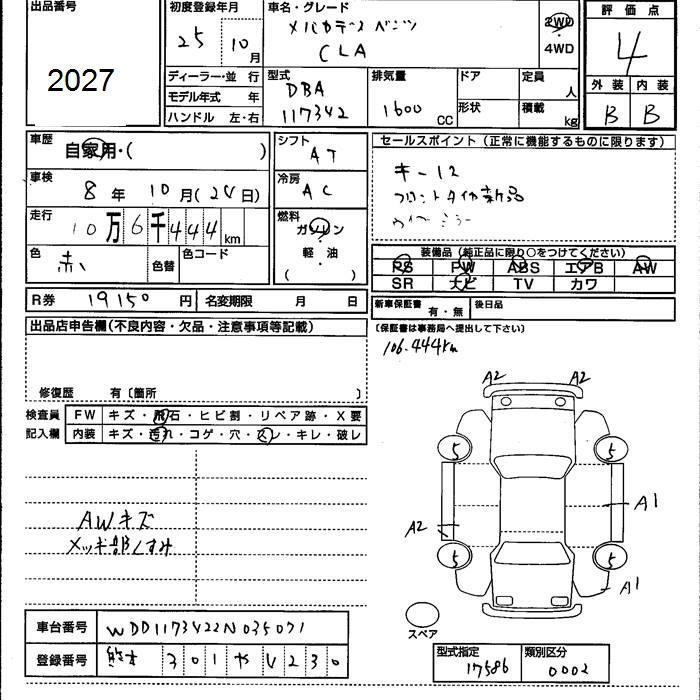 出品番号
2027
初度登録年月
25 10月
ディーラー・並 行
モデル年式 年
ハンドル 左・右
車名・グレード
CLA
2WD
・
4WD
型式
DBA
117342
排気量
1600 CC
ドア
形状
定員
人
積載
kg
評価点
4
外装 内装
B B
車歴
自家用・( )
車検
8年 10月(24日)
走行
10万6千444km
色
赤
色替
色コード
シフト
AT
冷房
AC
燃料
ガソリン
・
軽・油
( )
セールスポイント(正常に機能するものに限ります)
キー12
フロントタイヤ新品
装備品(純正品に限り○をつけてください)
PS PW ABS エアB AW
SR ナビ TV カワ
R券 19150円 名変期限 月 日
新車保証書
有・無
後日品
(保証書は事務局へ提出して下さい)
106.444km
出品店申告欄(不良内容・欠品・注意事項等記載)
修復歴 有〔箇所 〕
検査員
記入欄
FW キズ・飛石・ヒビ割・リペア跡・X要
内装 キズ・汚れ・コゲ・穴・スレ・キレ・破レ
AWキズ
メッキ部くすみ
A2 A2
5 5
A1
A2
5 5
A1
スペア
車台番号 WDD1173422N035071
登録番号 熊本 301 や 4230
型式指定 類別区分
17586 0002